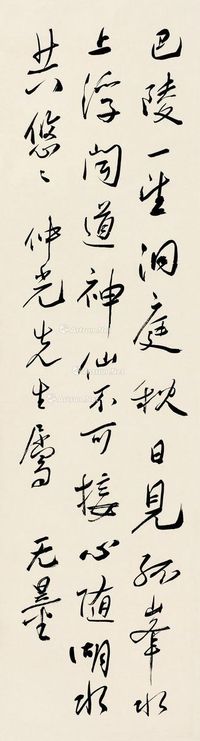 巴陵一望洞庭秋日見孤峰水
上浮闻道神仙不可接心随湖水
共悠〻仲光先生属 无量